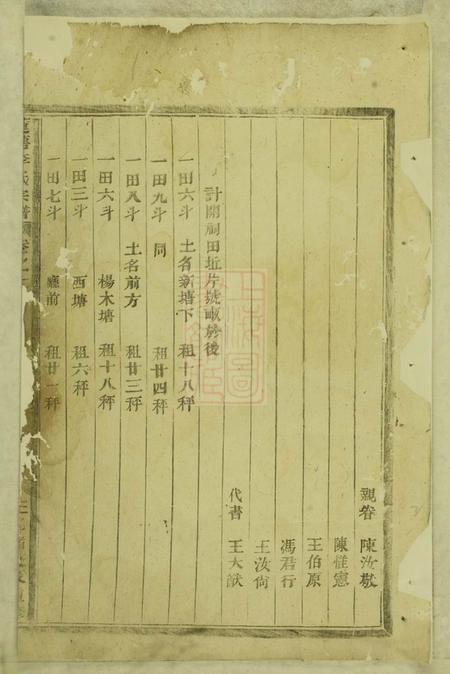 親眷 陳汝敬
陳惟憲
王伯原
馮君行
王汝尚
代書 王大猷
計開祠田坵片號畝於後
一田六斗 土名新塘下 租十八秤
一田九斗 同 租廿四秤
一田八斗 土名前方 租廿三秤
一田六斗 楊木塘 租十八秤
一田三斗 西塘 租六秤
一田七斗 廳前 租廿一秤